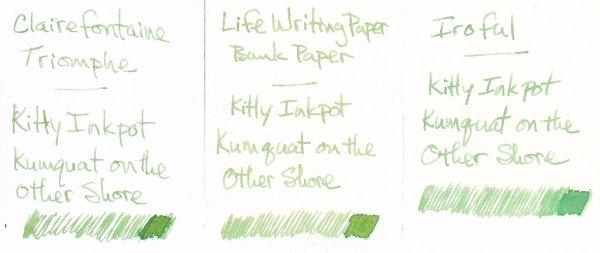 Clairefontaine
Triomphe
Kitty Inkpot
Kumquat on the
Other Shore
Life Writing Paper
Bank Paper
Kitty Inkpot
Kumquat on the
Other Shore
Iroful
Kitty Inkpot
Kumquat on the
Other Shore